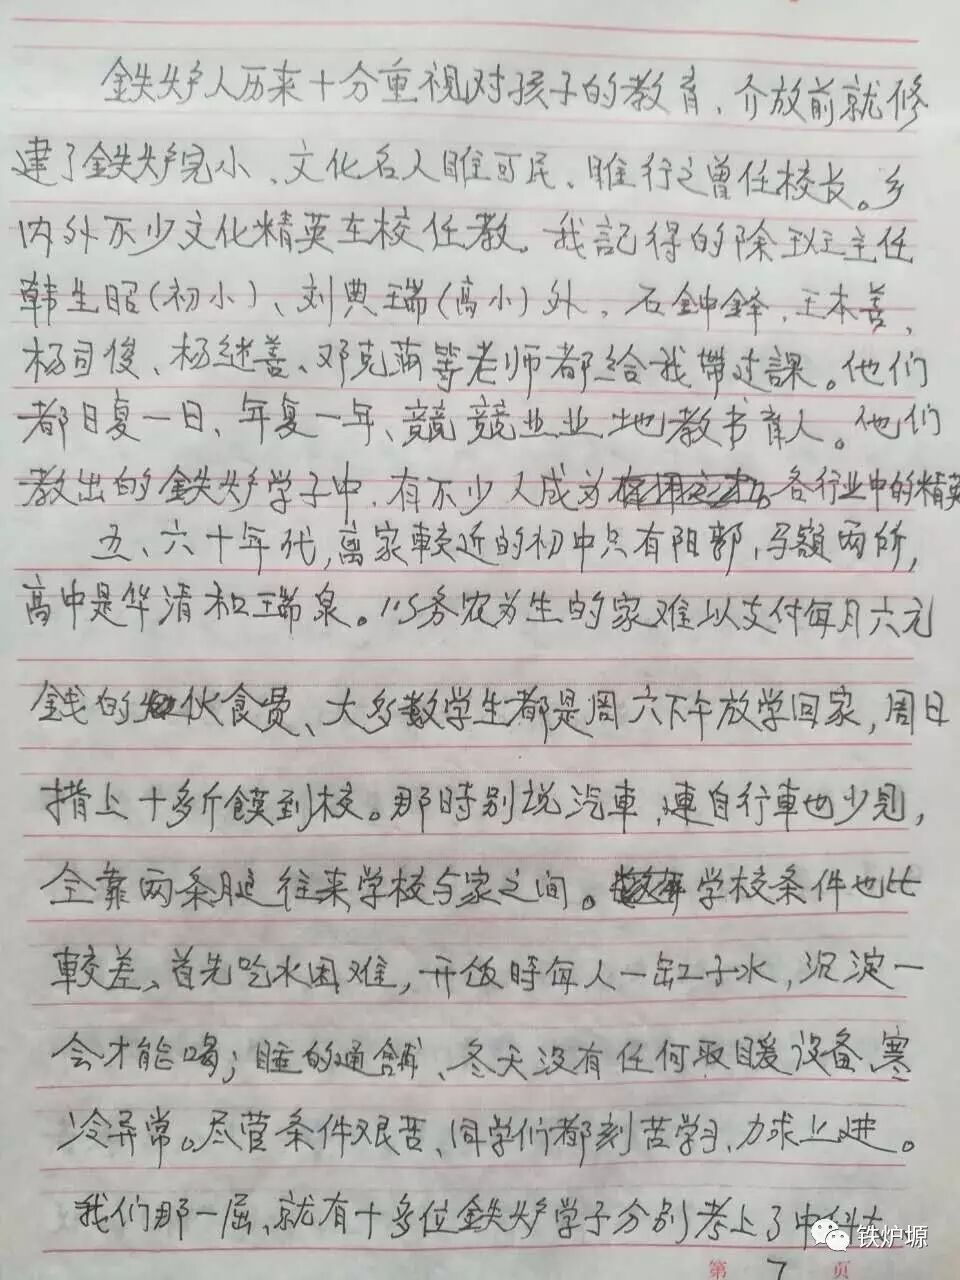 鉄炉人历来十分重视对孩子的教育，介放前就修
建了鉄炉完小、文化名人睢可民、睢行之曾任校长。乡
内外不少文化精英在校任教。我記得的除班主任
韩生昭(初小)、刘典瑞(高小)外，石鈡鋒、王本善、
杨司俊、杨继善、邓克苪等老师都给我带过課。他们
都日复一日、年复一年、競競业业地教书育人。他们
教出的鉄炉学子中，有不少人成为各行业中的精英
五、六十年代，离家較近的初中只有阳郭、马额两所，
高中是华清和瑞泉。以务农为生的家难以支付每月六元
錢的伙食费、大多数学生都是周六下午放学回家，周日
揹上十多斤饃到校。那時别说汽車，連自行車也少見，
全靠两条腿往来学校与家之间。学校条件也比
較差、首先吃水困难，开饭時每人一缸子水，沉淀一
会才能喝；睡的通舖、冬天没有任何取暖设备、寒
冷异常。尽管条件艰苦、同学们都刻苦学习、力求上进。
我们那一届、就有十多位鉄炉学子分别考上了中科大
铁炉塬
第 7 页